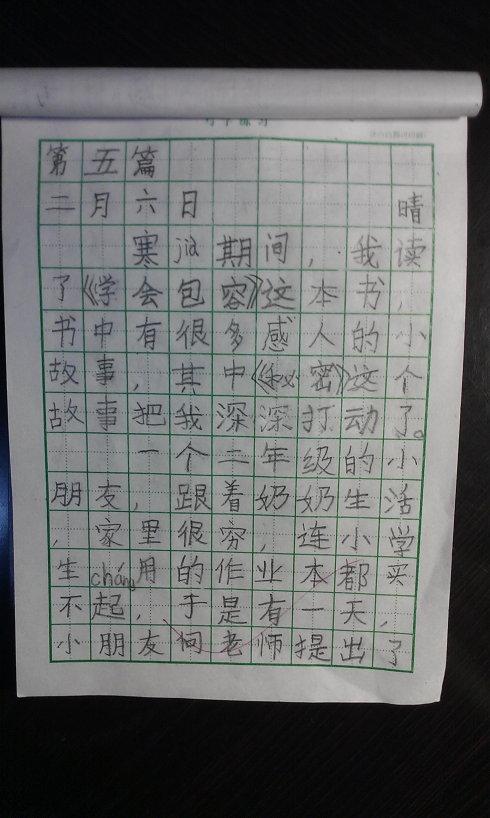 第五篇
二月六日 晴
寒jià期间，我读
了《学会包容》这本书，
书中有很多感人的小
故事，其中《秘密》这个
故事把我深深打动了。
一个二年级的小
朋友，跟着奶奶生活
，家里很穷，连小学
生cháng用的作业本都买
不起，于是有一天，
小朋友向老师提出了